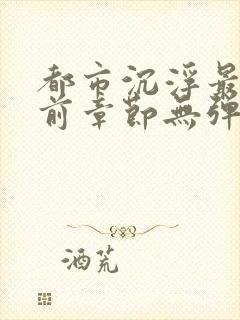 都市沉浮最
前章節無彈
酒荒